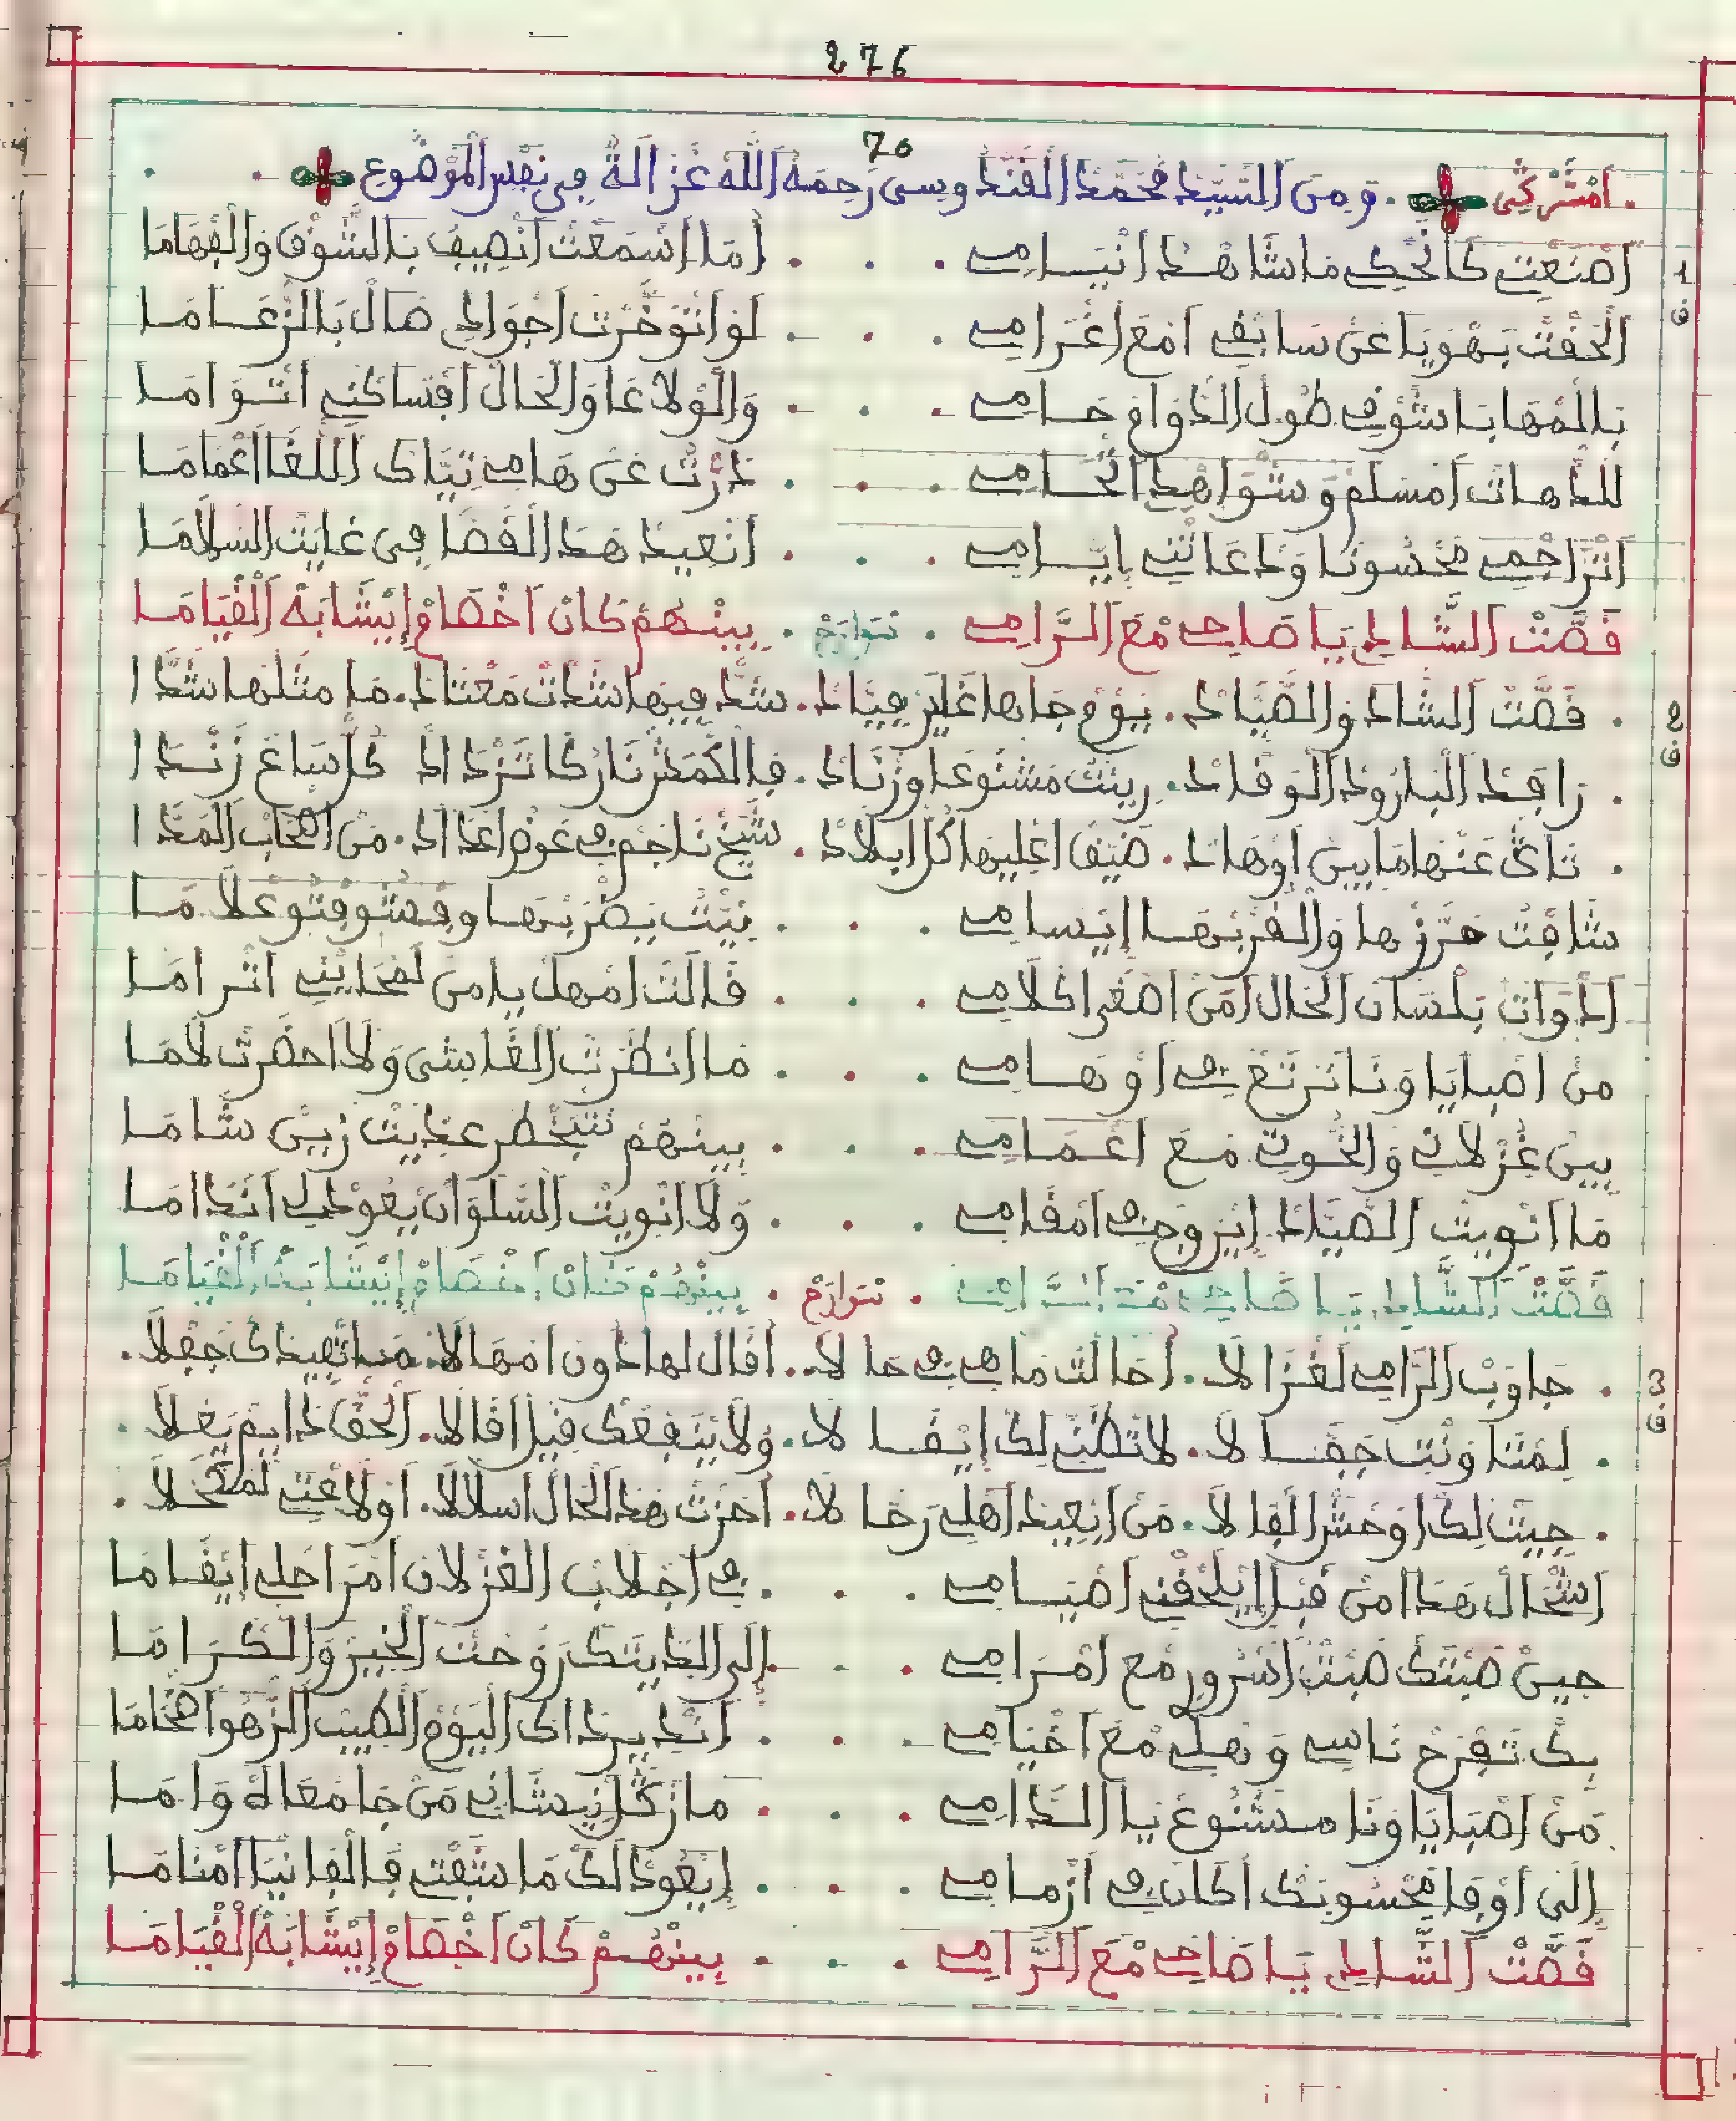 276
70
امشركي . ومن السيد محمد الفندوسي رحمه الله غزالة في نفس الموضوع
1 اصنعتي كانحكي ما شاهد انيامي . . . اما اسمعت انصيف بالشوق والفهاما
ف الحقت بهويا عن سابقي امع اغرامي . . . لو اتوخرت اجوادي صال بالزعاما
بالمهابا شوفي طول الدوام حامي . . . والولاعا والحال افتساكني اتواما
للداهات امسلم وشواهد الحامي . . . درت عن هامي تياك اللغا اعماما
اتراجمي محسونا ودعاتني ايامي . . . انعيد هد القصا في غايت السلاما
قصت الشادي يا صاحي مع الرامي . توازم . بينهم كان اخصام إيشابه القياما
2 . قصت الشاد والصياد . يوم جابها غاير فياد . شد فيها شدت معتاد . ما مثلها شدا
ف . رافد البارود الوقاد . ريت مشنوعا وزناد . فالكمش نار كا تزداد كل ساع زندا
. تاك عنها ما بين اوهاد . ضيف اعليها كل ابلاد . شيخ ناجم في غوم اعداد . من اصحاب المدا
شافت حرزها والقربها إيسامي . . . نيت يضربها وفشوفتو علاما
ادوات بلسان الحال امن اصغى اكلامي . . . قالت امهل يا من لمحاييني اتراما
من اصبايا ونا نرتع في اوهامي . . . ما انظرت الغايشي ولا احضرت لاما
بين غزلاني والخوتي مع اعمامي . . . بينهم نتبخطر عديت زين شاما
ما انويت الصياد إيزوجي امقامي . . . ولا انويت السلوان يعود لي انداما
قصت الشادي يا صاحي مع الرامي . توازم . بينهم كان اخصام إيشابه القياما
3 . جاوب الرامي لغزالا . اخالت ما هي في حالا . . اقال لها دون امهالا . ما اتفيدك جفلا .
ف . لمتا ونت جفالا . لا تضني لك إيقالا . ولا ينفعك قيل اقالا . الحق دايم يعلا .
. جيت لك اوحش الفالا . من إنعيد اهلي رحالا . احزت هد الحال اسلالا . اولاعتي لمنحلا .
اشحال هدا من قبل إيلحقني اصيامي . . . في اجلاب الغزلان امراحلي ايقاما
جين صبتك صبت السرور مع امرامي . . . إلى الديتك روحت الخير والكراما
بك تفرح ناسي وهلي مع اخيامي . . . انديرداك اليوم الطيب الزهو اضخاما
من اصبايا ونا مشنوع يا الدامي . . . ما زكل نيشاني من جا معاه واما
إلى اوفا محسوبك اكان في ازمامي . . . إيعود لك ما سبقت فالفانيا امناما
قصت الشادي يا صاحي مع الرامي . . . بينهم كان اخصام إيشابه القياما